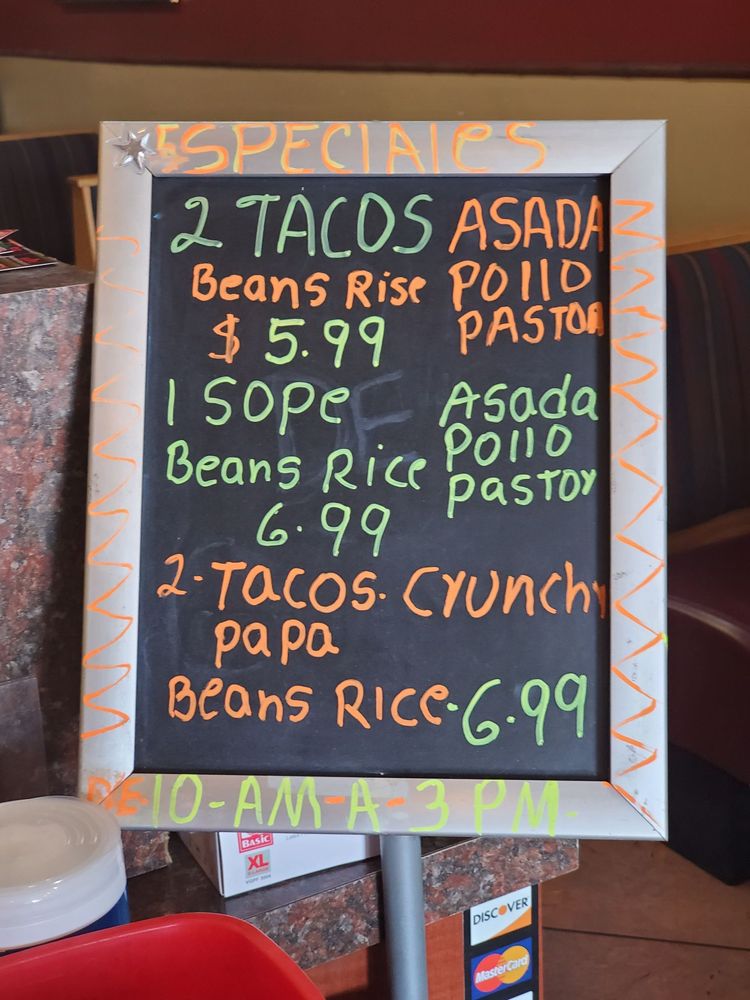 ESPECIALES
2 TACOS ASADA
Beans Rise POllO
$ 5.99 PASTOR
1 SOPe Asada
Beans Rice POllO
6.99 pastor
2-TACOS. Crunchy
papa
Beans Rice.6.99
DE-10-AM-A-3 PM-
BASIC
XL
DISCOVER
MasterCard